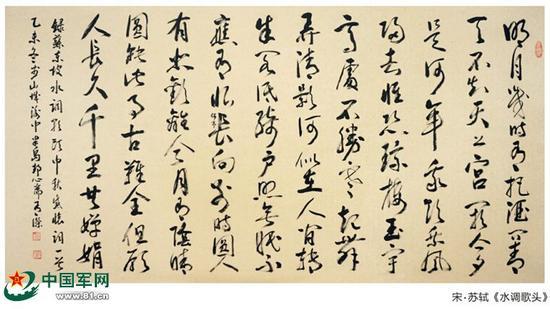 明月幾时有把酒问青
天不知天上宫阙今夕
是何年我欲乘风
归去惟恐琼楼玉宇
高處不勝寒起舞
弄清影何似在人间转
朱阁低绮户照无眠不
應有恨長向别时圆人
有悲歡離合月有陰晴
圆缺此事古難全但願
人長久千里共嬋娟
錄蘇東坡水调歌頭中秋感懷词一首
乙未冬山城渝中
中国军网
www.81.cn
宋·苏轼《水调歌头》